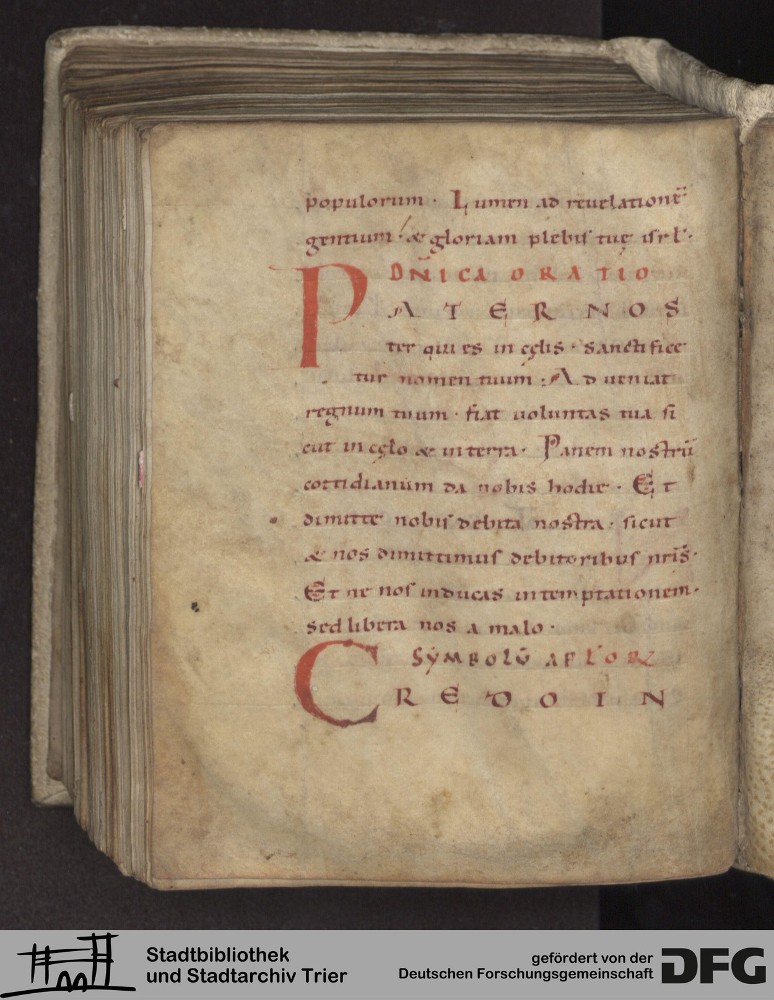 populorum · Lumen ad reuelationē
gentium · & gloriam plebis tuę isrl̄ ·
DN̄ICA ORATIO
PATERNOS
ter qui es in cęlis · sanctifice
tur nomen tuum · Adueniat
regnum tuum · fiat uoluntas tua si
cut in cęlo & in terra · Panem nostrū
cottidianum da nobis hodie · Et
dimitte nobis debita nostra · sicut
& nos dimittimus debitoribus nr̄is ·
Et ne nos inducas in temptationem ·
sed libera nos a malo ·
SYMBOLŪ APL̄OR
CREDO IN
Stadtbibliothek
und Stadtarchiv Trier
gefördert von der
Deutschen Forschungsgemeinschaft
DFG